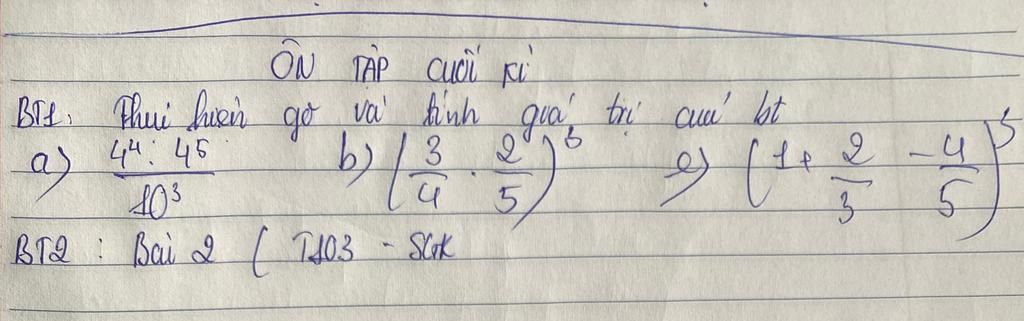 ÔN TẬP CUỐI KÌ
BT1: Thực hiện gọ và tính quá trị cuả bt
a) 4⁴ : 4⁵ / 10³ b) (3/4 . 2/5)⁵ e) (1 + 2/3 - 4/5)⁵
BT2 : Bài 2 ( T103 - SGK